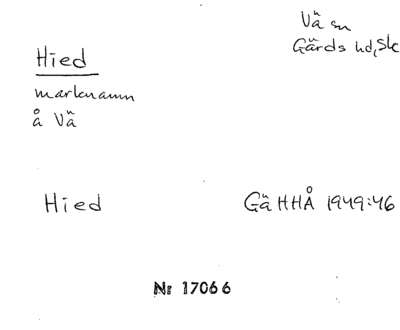 Vä sn
Gärds hd, Sk
Hied
marknamn
å Vä
Hied GäHHÅ 1949:46
Nr 17066